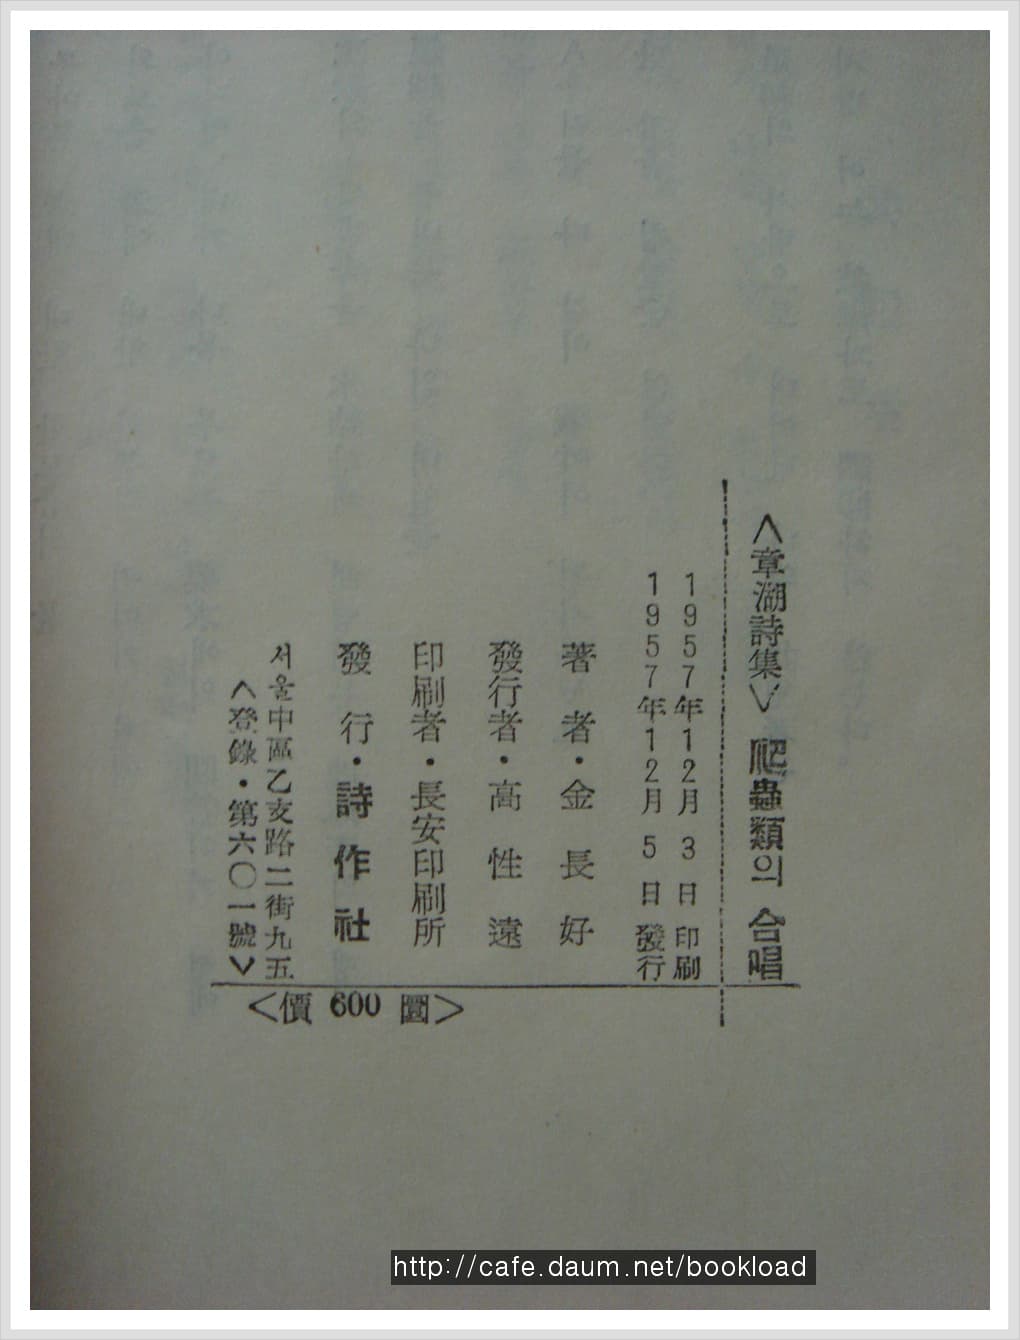 <章湖詩集> 爬蟲類의 合唱
1957年12月 3日 印刷
1957年12月 5日 發行
著者・金長好
發行者・高性遠
印刷者・長安印刷所
發行・詩作社
서울中區乙支路二街九五
<登錄・第六〇一號>
<價 600 圜>
http://cafe.daum.net/bookload